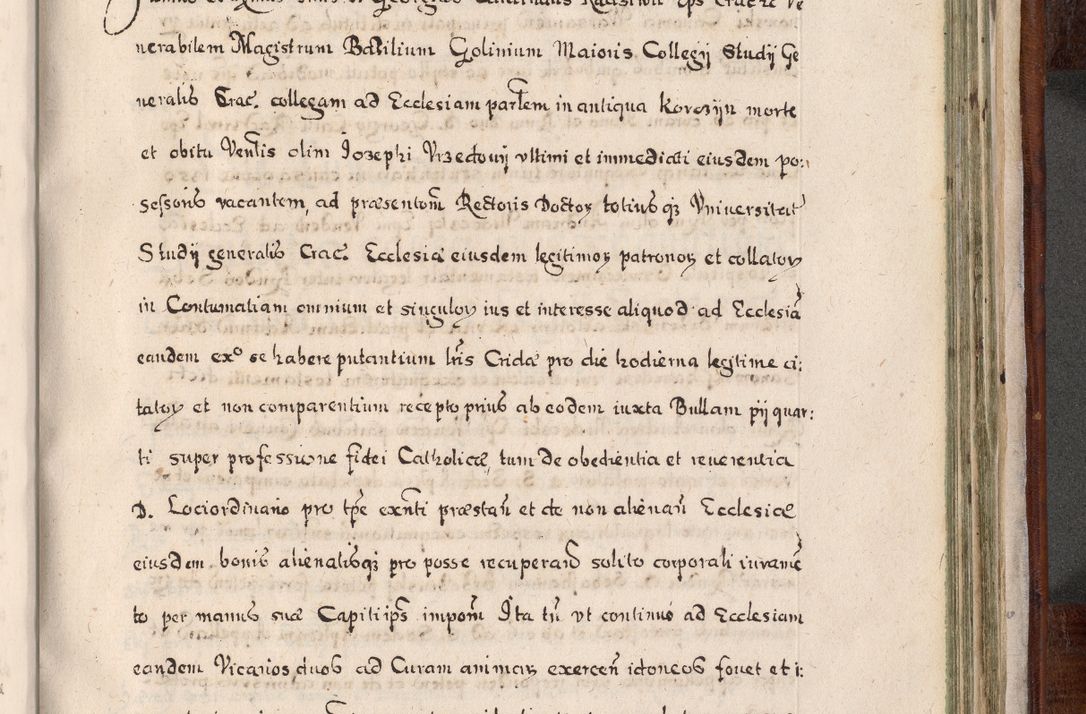 nerabilem Magistrum Basilium Golinium Maioris Collegij Studij Ge
neralis Crac. collegam ad Ecclesiam parlem in antiqua Korczyn morte
et obitu Venlis olim Iozephi Vrzedowij vltimi et immediati eiusdem po:
sessoris vacantem, ad præsentom Rectoris Doctoꝝ totiusqꝫ Vniuersitat
Studij generalis Crac. Ecclesiæ eiusdem legitimoꝝ patronoꝝ et collatoꝝ
in Contumatiam omnium et singuloꝝ ius et interesse aliquod ad Ecclesiā
eandem exo se habere putantium lris Cridæ pro die hodierna legitime ci:
tatoꝝ et non comparentium recepto prius ab eodem iuxta Bullam pij quar:
ti super professione fidei Catholicæ, tum de obedientia et reuerentia
D. Lociordinario pro tpe exnti præstan et de non alienan Ecclesiæ
eiusdem bonis alienatisqꝫ pro posse recuperand solito corporali iurame
to per manus suæ Capiti ips impom Ita tn vt continuo ad Ecclesiam
eandem Vicarios duos ad Curam animaꝝ exercen idoneos fouet et i: